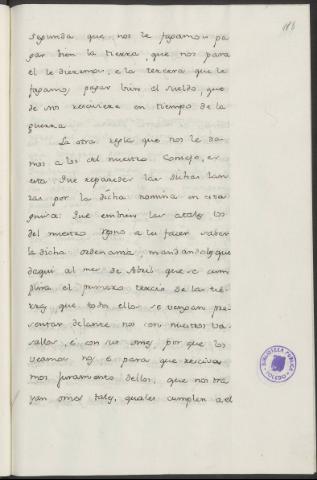 186
segunda que nos le fagamos pa
gar bien la tierra, que nos para
él le dieremos, e la tercera que le
fagamos pagar bien el sueldo, que
de nos reciviere en tiempo de la
guerra
La otra regla que nos le da-
mos a los del nuestro Consejo, es
esta Que repartidas las dichas lan-
zas por la dicha nomina en esta
guisa: Que embien las a los
del nuestro regno a les facer saber
la dicha ordenanza, mandandoles que
daqui al mes de Abril que se cum
plirá el primero tercio de las tie-
rras que todos ellos se vengan pre-
sentar delante nos con nuestros va-
sallos, e con sus omes, por que los
veamos nos e para que reciva-
mos juramento dellos, que nos tra-
yan omes tales, quales cumplen a el
BIBLIOTECA PUBLICA
TOLEDO